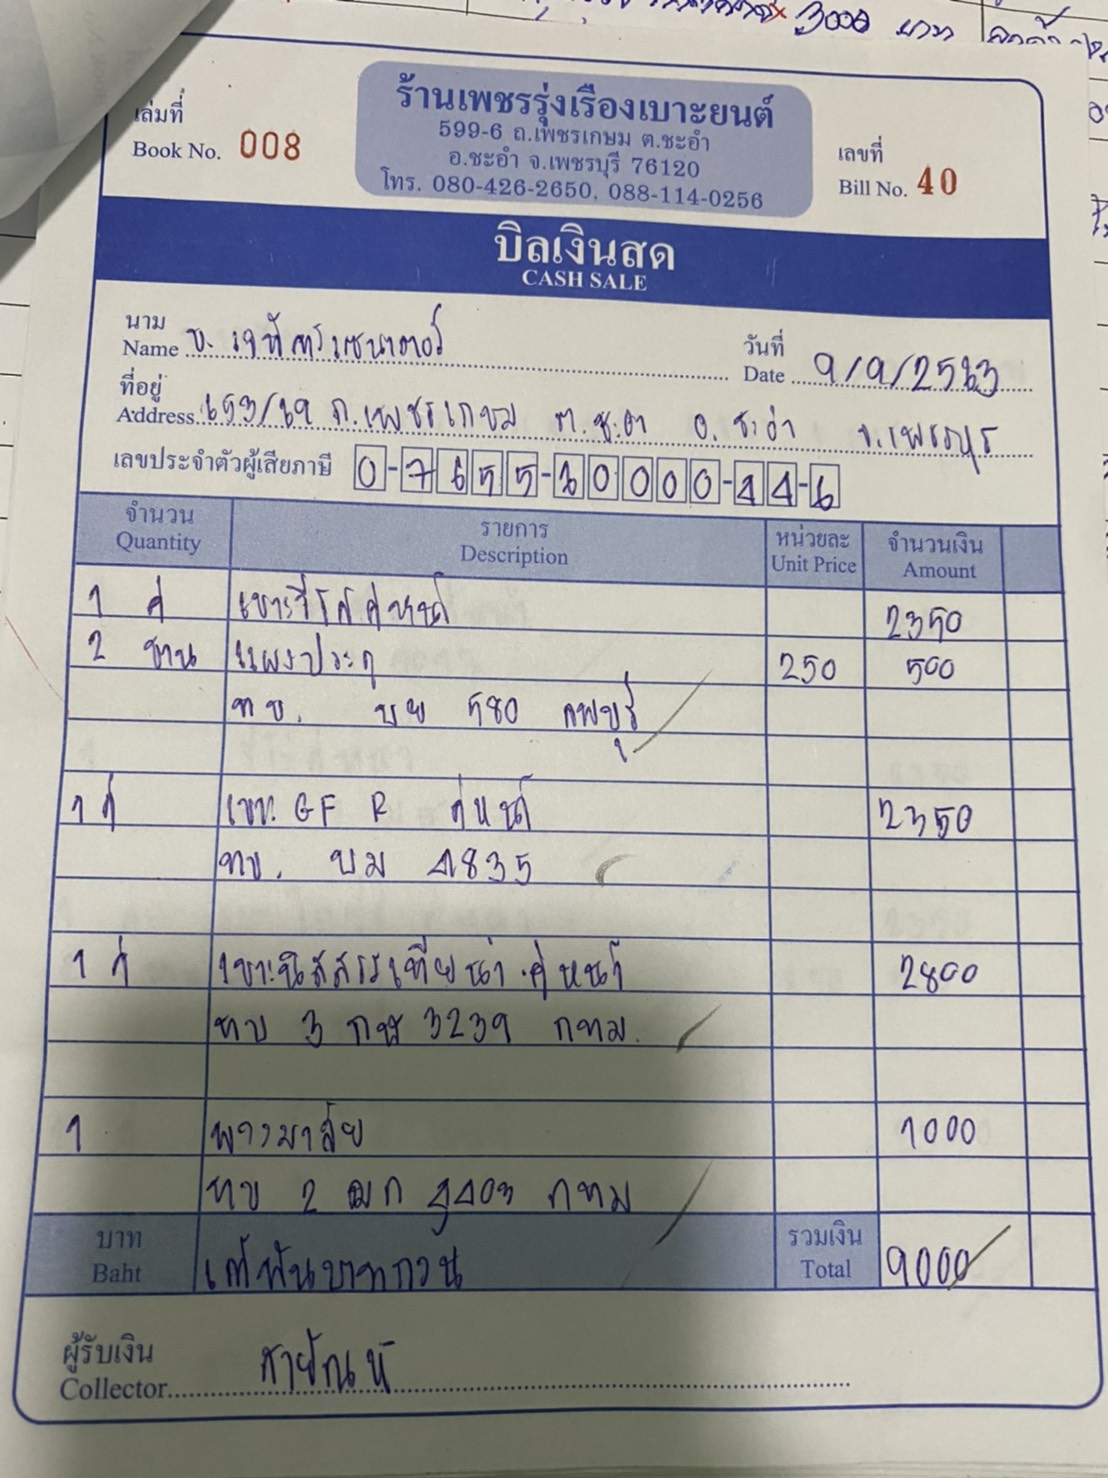 3000 บาท
ร้านเพชรรุ่งเรืองเบาะยนต์
599-6 ถ.เพชรเกษม ต.ชะอำ
อ.ชะอำ จ.เพชรบุรี 76120
โทร. 080-426-2650, 088-114-0256
เล่มที่
Book No. 008
เลขที่
Bill No. 40
บิลเงินสด
CASH SALE
นาม
Name บ.
วันที่
Date 9/9/2563
ที่อยู่
Address 653/69 ถ.เพชรเกษม ต.ชะอำ อ.ชะอำ จ.เพชรบุรี
เลขประจำตัวผู้เสียภาษี 0-7655-60000-44-6
จำนวน รายการ หน่วยละ จำนวนเงิน
Quantity Description Unit Price Amount
1 คู่ เบาะวีโก้คู่หน้า 2350
2 บาน แผงประตู 250 500
ทบ. บย 580 ลพบุรี
1 คู่ เบาะ GF R คู่หน้า 2350
ทบ. บม 4835
1 คู่ เบาะนิสสรรเทียน่า คู่หน้า 2800
ทบ 3 กฬ 3239 กทม.
1 พวงมาลัย 1000
ทบ 2 ฒก กทม
บาท รวมเงิน
Baht เก้าพันบาทถ้วน Total 9000
ผู้รับเงิน
Collector สายัณห์